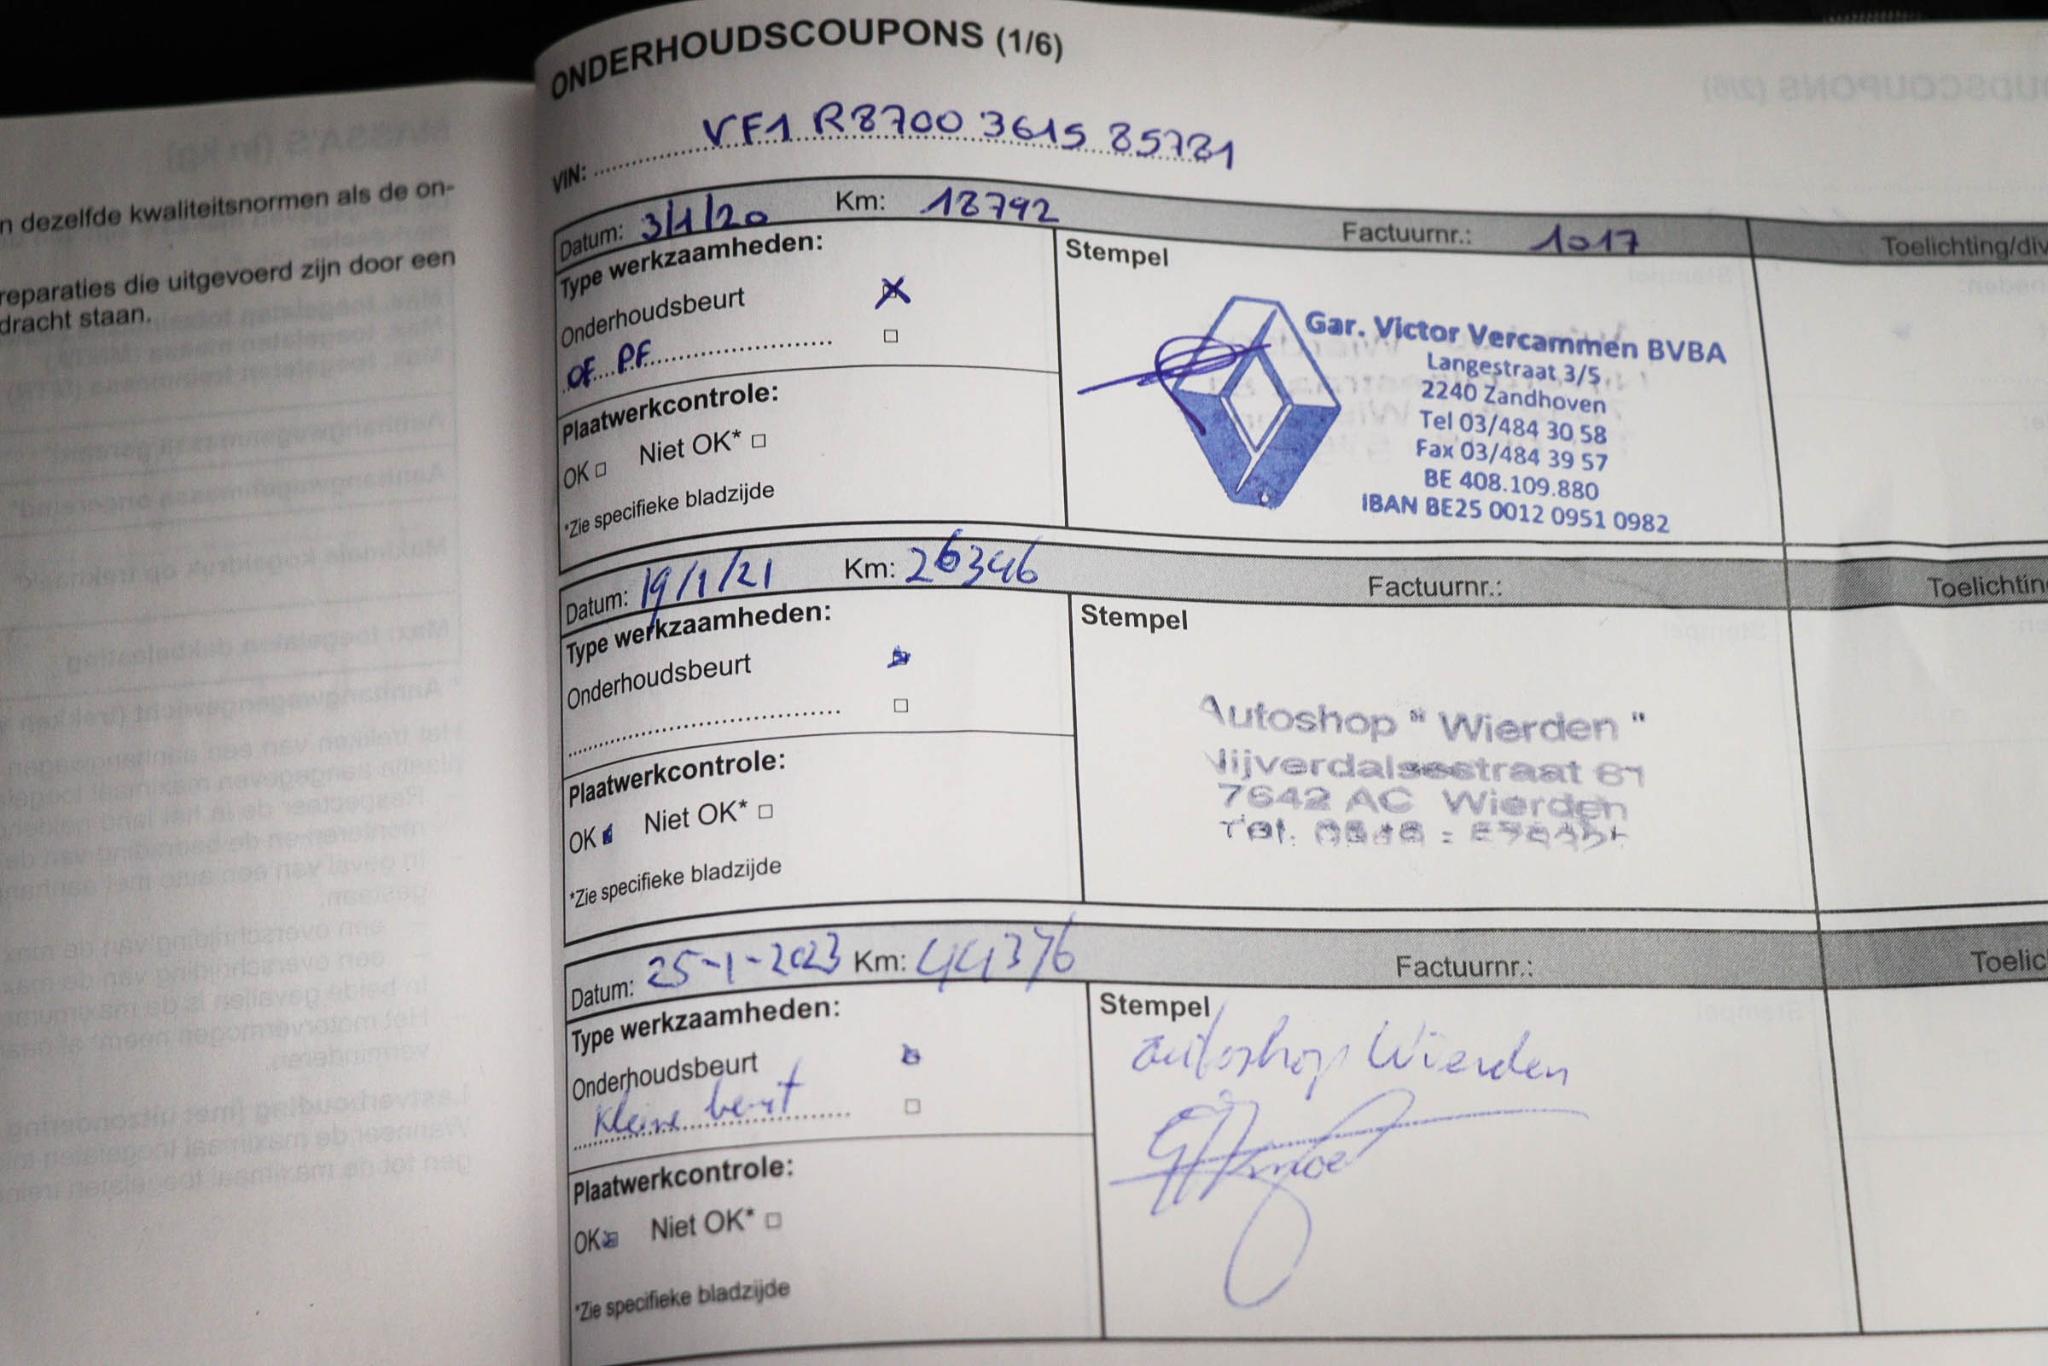 n dezelfde kwaliteitsnormen als de on-
reparaties die uitgevoerd zijn door een
dracht staan.
ONDERHOUDSCOUPONS (1/6)
VIN: VF1 R8700 3615 85781
Datum: 3/1/20 Km: 18792 Factuurnr.: 1017 Toelichting/div
Type werkzaamheden:
Onderhoudsbeurt
OF PF
Plaatwerkcontrole:
OK Niet OK*
*Zie specifieke bladzijde
Stempel
Gar. Victor Vercammen BVBA
Langestraat 3/5
2240 Zandhoven
Tel 03/484 30 58
Fax 03/484 39 57
BE 408.109.880
IBAN BE25 0012 0951 0982
Datum: 19/1/21 Km: 26346 Factuurnr.: Toelichtin
Type werkzaamheden:
Onderhoudsbeurt
Plaatwerkcontrole:
OK Niet OK*
*Zie specifieke bladzijde
Stempel
Autoshop " Wierden "
Nijverdalsestraat 61
7642 AC Wierden
Tel.
Datum: 25-1-2023 Km: 44376 Factuurnr.: Toelic
Type werkzaamheden:
Onderhoudsbeurt
Kleine beurt
Plaatwerkcontrole:
OK Niet OK*
*Zie specifieke bladzijde
Stempel
autoshop Wierden